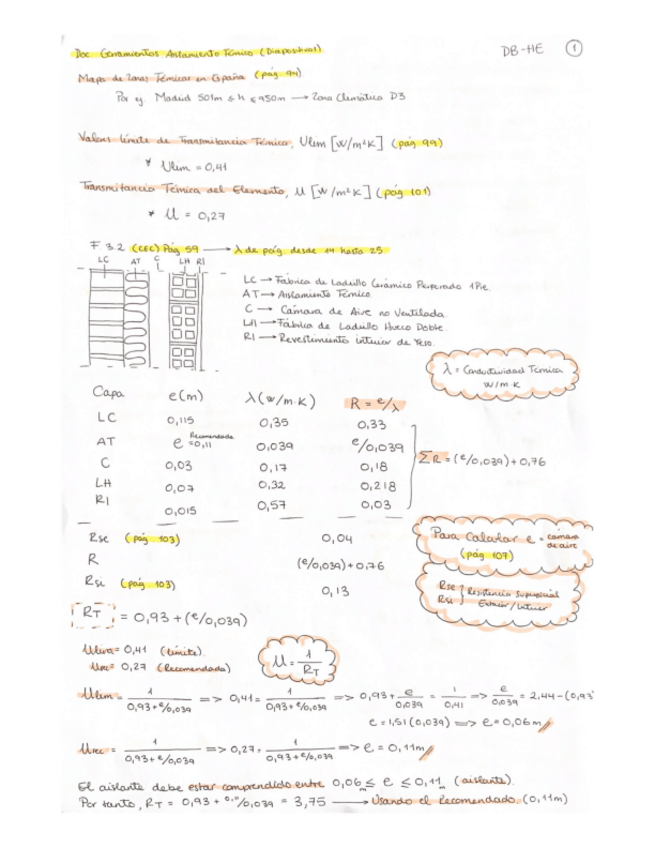 Doc Cerramientos Aislamiento Térmico (Diapositivas)
DB-HE 1
Mapa de Zonas Térmicas en España (pág 94)
Por ej. Madrid 501m ≤ h ≤ 950m → Zona Climática D3
Valores límite de Transmitancia Térmica, Ulim [W/m²K] (pág 99)
* Ulim = 0,41
Transmitancia Térmica del Elemento, U [W/m²K] (pág 101)
* U = 0,27
F 3.2 (CEC) Pág 59 → λ de pág. desde 14 hasta 25
LC AT C LH RI
LC → Fábrica de Ladrillo Cerámico Perforado 1 Pie.
AT → Aislamiento Térmico
C → Cámara de Aire no Ventilada.
LH → Fábrica de Ladrillo Hueco Doble.
RI → Revestimiento interior de Yeso.
λ = Conductividad Térmica
W/m·K
Capa e(m) λ(W/m·K) R = e/λ
LC 0,115 0,35 0,33
AT e Recomendada =0,11 0,039 e/0,039
C 0,03 0,17 0,18
LH 0,07 0,32 0,218
RI 0,015 0,57 0,03
ΣR = (e/0,039)+0,76
Rse (pág 103) 0,04
R (e/0,039)+0,76
Rsi (pág. 103) 0,13
Para Calcular e = cámara de aire
(pág 107)
Rse } Resistencia Superficial
Rsi } Exterior/Interior
RT = 0,93 + (e/0,039)
Ulim = 0,41 (límite).
Urec = 0,27 (Recomendada)
U = 1/RT
Ulim = 1/0,93+e/0,039 => 0,41 = 1/0,93+e/0,039 => 0,93 + e/0,039 = 1/0,41 => e/0,039 = 2,44-(0,93
e = 1,51(0,039) => e = 0,06m//
Urec = 1/0,93+e/0,039 => 0,27 = 1/0,93+e/0,039 => e = 0,11m//
El aislante debe estar comprendido entre 0,06m ≤ e ≤ 0,11m (aislante).
Por tanto, RT = 0,93 + 0,11/0,039 = 3,75 → Usando el Recomendado (0,11m)